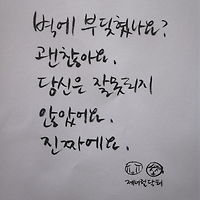 벽에 부딪혔나요?
괜찮아요.
당신은 잘못되지
않았어요.
진짜예요.